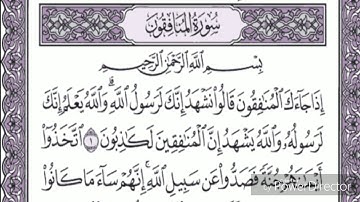 سُورَةُ الْمُنَافِقُونَ
بِسْمِ اللَّهِ الرَّحْمَٰنِ الرَّحِيمِ
إِذَا جَاءَكَ الْمُنَافِقُونَ قَالُوا نَشْهَدُ إِنَّكَ لَرَسُولُ اللَّهِ ۗ وَاللَّهُ يَعْلَمُ إِنَّكَ
لَرَسُولُهُ وَاللَّهُ يَشْهَدُ إِنَّ الْمُنَافِقِينَ لَكَاذِبُونَ ١ اتَّخَذُوا
أَيْمَانَهُمْ جُنَّةً فَصَدُّوا عَن سَبِيلِ اللَّهِ ۚ إِنَّهُمْ سَاءَ مَا كَانُوا
PowerDirector